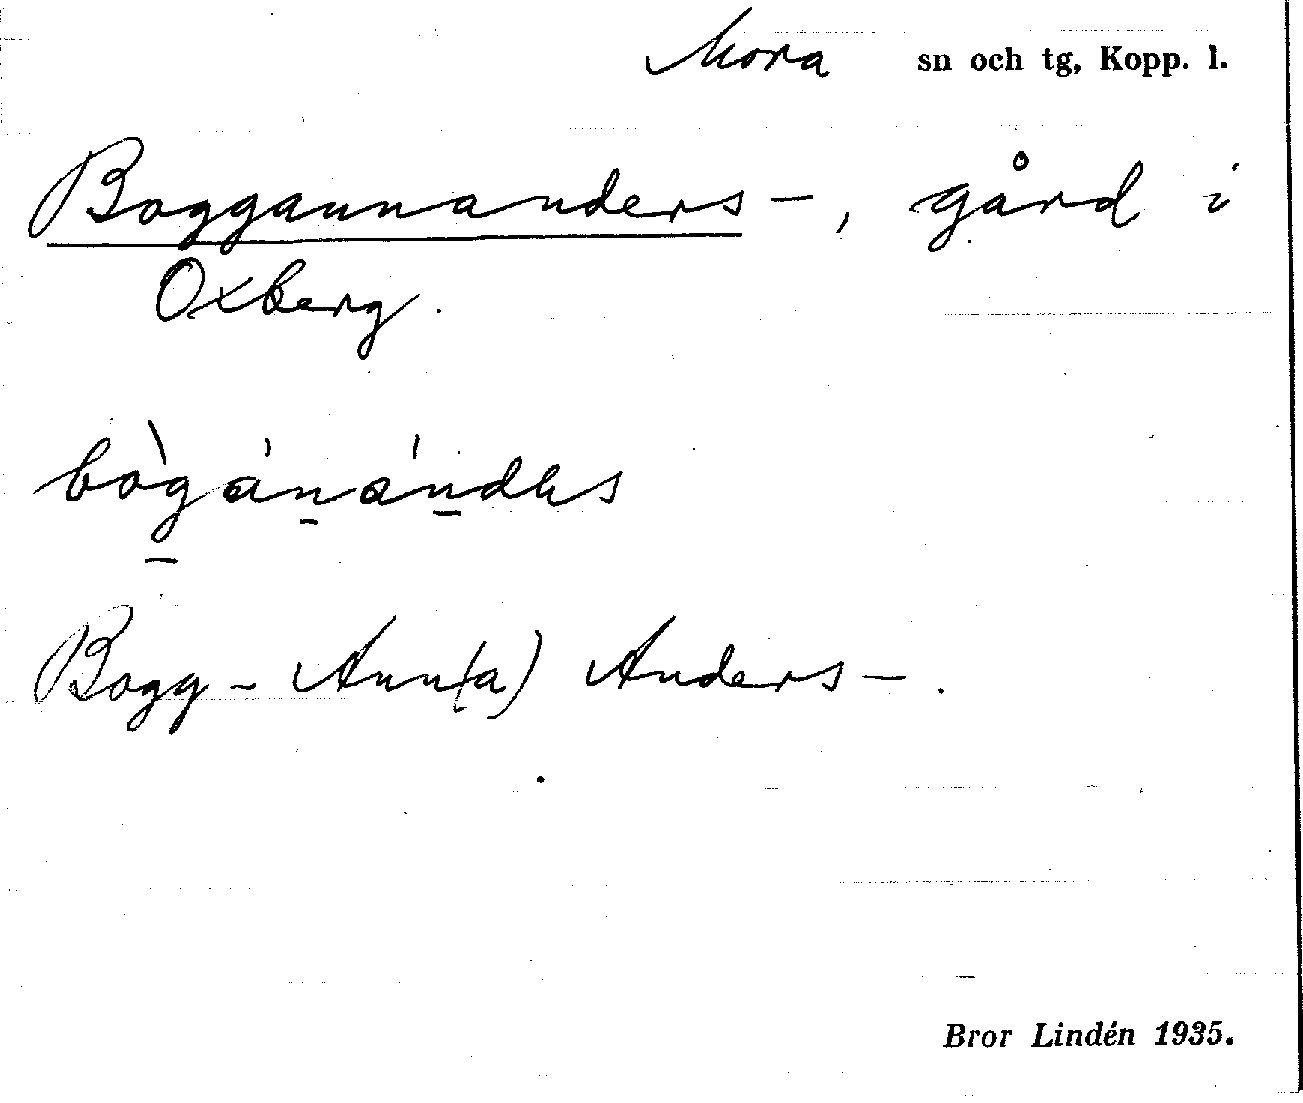 Mora sn och tg, Kopp. l.
Boggannanders-, gård i
Oxberg.
bògánándes
Bogg - Ann(a) Anders-.
Bror Lindén 1935.